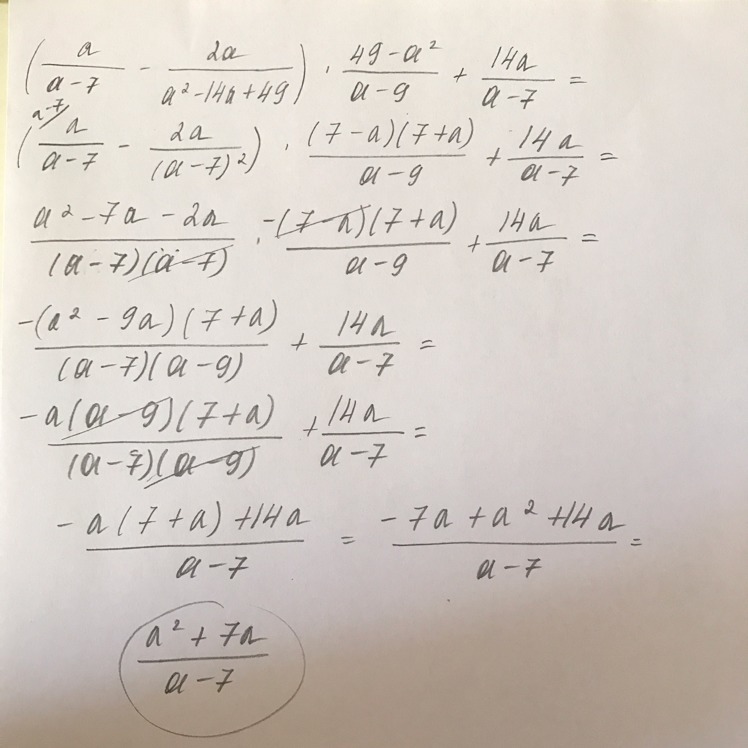 (a/(a-7) - 2a/(a²-14a+49)) · (49-a²)/(a-9) + 14a/(a-7) =
a-7
(a/(a-7) - 2a/(a-7)²) · (7-a)(7+a)/(a-9) + 14a/(a-7) =
(a²-7a-2a)/((a-7)(a-7)) · -(7-a)(7+a)/(a-9) + 14a/(a-7) =
-(a²-9a)(7+a)/((a-7)(a-9)) + 14a/(a-7) =
-a(a-9)(7+a)/((a-7)(a-9)) + 14a/(a-7) =
(-a(7+a)+14a)/(a-7) = (-7a+a²+14a)/(a-7) =
(a²+7a)/(a-7)